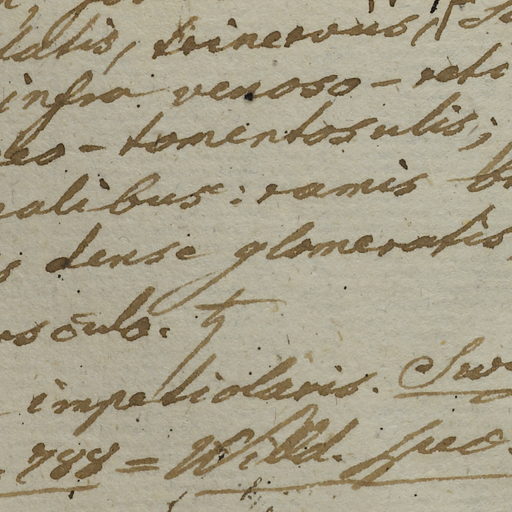 latis, trinervus,
infra venoso-reti
eo-tomentosulis;
alibus: ramis br
s dense glomeratis,
osculo. ♄
impetiolaris. Sw
788 = Willd. spec.